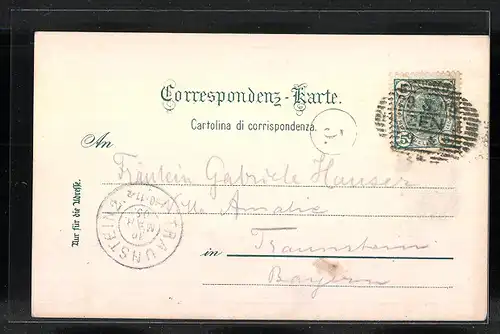 Correspondenz-Karte.
Cartolina di corrispondenza.
An
Fräulein Gabriele Hauser
Villa Amalie
in Traunstein
Bayern
Nur für die Adresse.
TRAUNSTEIN
MAR
5 5